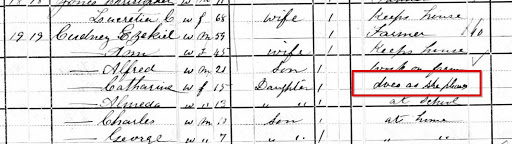 Lucretia C w f 68 wife 1 Keeps house
19 19 Cudney Ezekiel w m 59 1 Farmer
— Ann w f 45 wife 1 Keeps house
— Alfred w m 21 Son 1 work on farm
— Catharine w f 15 Daughter 1 does as she pleases
— Almeda w " 13 " " 1 at school
— Charles w m Son 1 at home
— George w " 7 " " 1 " "